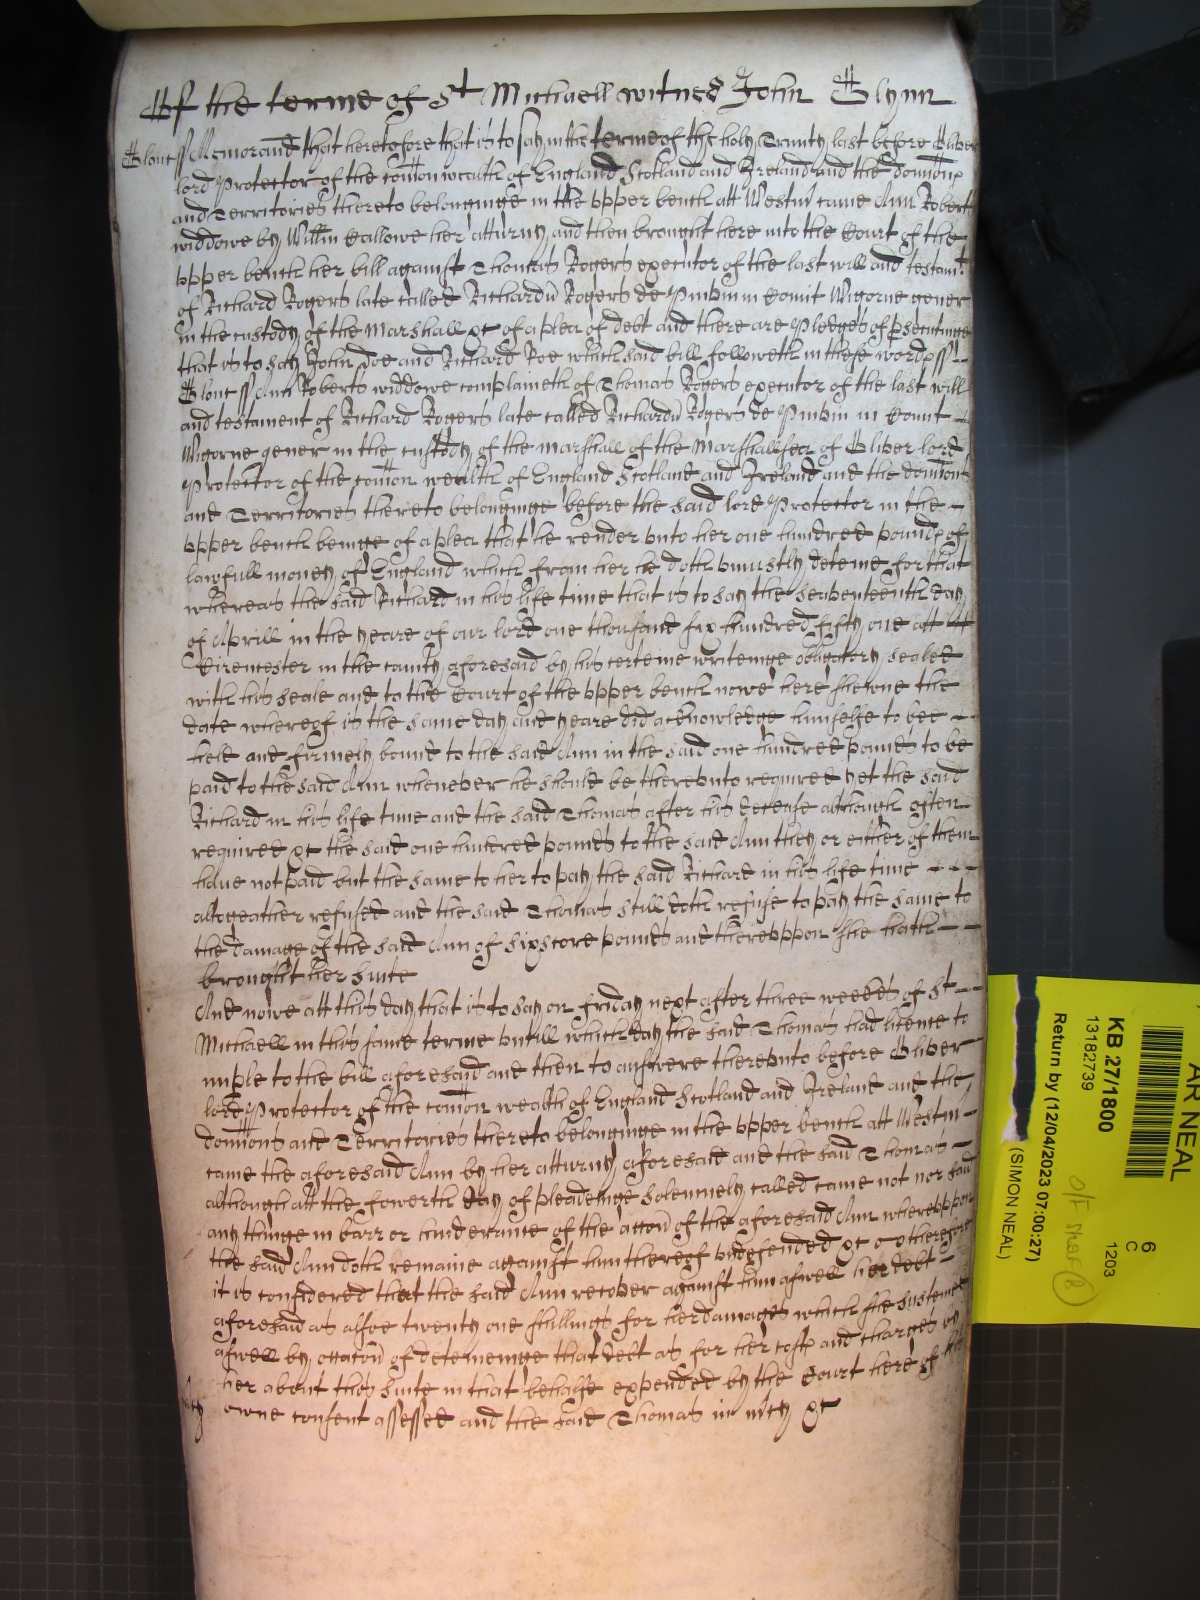 Of the terme of St Michaell witnes John Glynn
Glouc ss Memorand that heretofore that is to say in the terme of the holy Trinity last before Oliver
lord Protector of the comon wealth of England Scotland and Ireland and the dominions
and Territories thereto belonginge in the vpper bench att Westm came Ann Roberts
widdowe by Willm Hallowe her atturny and then brought here into the Court of the
vpper bench her bill against Thomas Rogers executor of the last will and testamt
of Richard Rogers late called Richardu Rogers de Pinvin in Comit Wigorne gener
in the custody of the Marshall &c of a plea of debt and there are Pledges of psecutinge
that is to say John Doe and Richard Roe which said bill followeth in these words ss
Glouc ss Ann Roberts widdowe complaineth of Thomas Rogers executor of the last will
and testament of Richard Rogers late called Richardu Rogers de Pinvin in Comit
Wigorne gener in the custody of the marshall of the Marshallsea of Oliver lord
Protector of the comon wealth of England Scotland and Ireland and the dominions
and Territories thereto belonginge before the said lord Protector in the
vpper bench beinge of a plea that he render vnto her one hundred pounds of
lawfull money of England which from her he doth vniustly deteine for that
whereas the said Richard in his life time that is to say the seaventeenth day
of Aprill in the yeare of our lord one thousand six hundred fifty one att
Cirencester in the county aforesaid by his certeine writeinge obligatory sealed
with his seale and to the Court of the vpper bench nowe here shewne the
date whereof is the same day and yeare did acknowledge himselfe to bee
held and firmely bound to the said Ann in the said one hundred pounds to be
paid to the said Ann whenever he should be therevnto required yet the said
Richard in his life time and the said Thomas after his decease although often
required &c the said one hundred pounds to the said Ann they or either of them
haue not paid but the same to her to pay the said Richard in his life time
altogeather refused and the said Thomas still doth refuse to pay the same to
the damage of the said Ann of sixscore pounds and therevppon she hath
brought her suite
And nowe att this day that is to say on friday next after three weekes of St
Michaell in this same terme vntill which day the said Thomas had licence to
imple to the bill aforesaid and then to answere therevnto before Oliver
lord Protector of the comon wealth of England Scotland and Ireland and the
domions and Territories thereto belonginge in the vpper bench att Westm
came the aforesaid Ann by her atturny aforesaid and the said Thomas
although att the fowerth day of pleadeinge solemnely called came not nor said
any thinge in barr or hinderance of the accon of the aforesaid Ann wherevppon
the said Ann doth remaine against him thereof vndefended &c therefore
it is considered that the said Ann recover against him aswell her debt
aforesaid as alsoe twenty one shillings for her damages which she susteined
aswell by occacon of deteineinge that debt as for her costs and charges by
her about this suite in that behalfe expended by the Court here of her
owne consent assessed and the said Thomas in mcy &c
mcy
AR NEAL
KB 27/1800
13182739
Return by (12/04/2023 07:00:27)
(SIMON NEAL)
6
C
1203